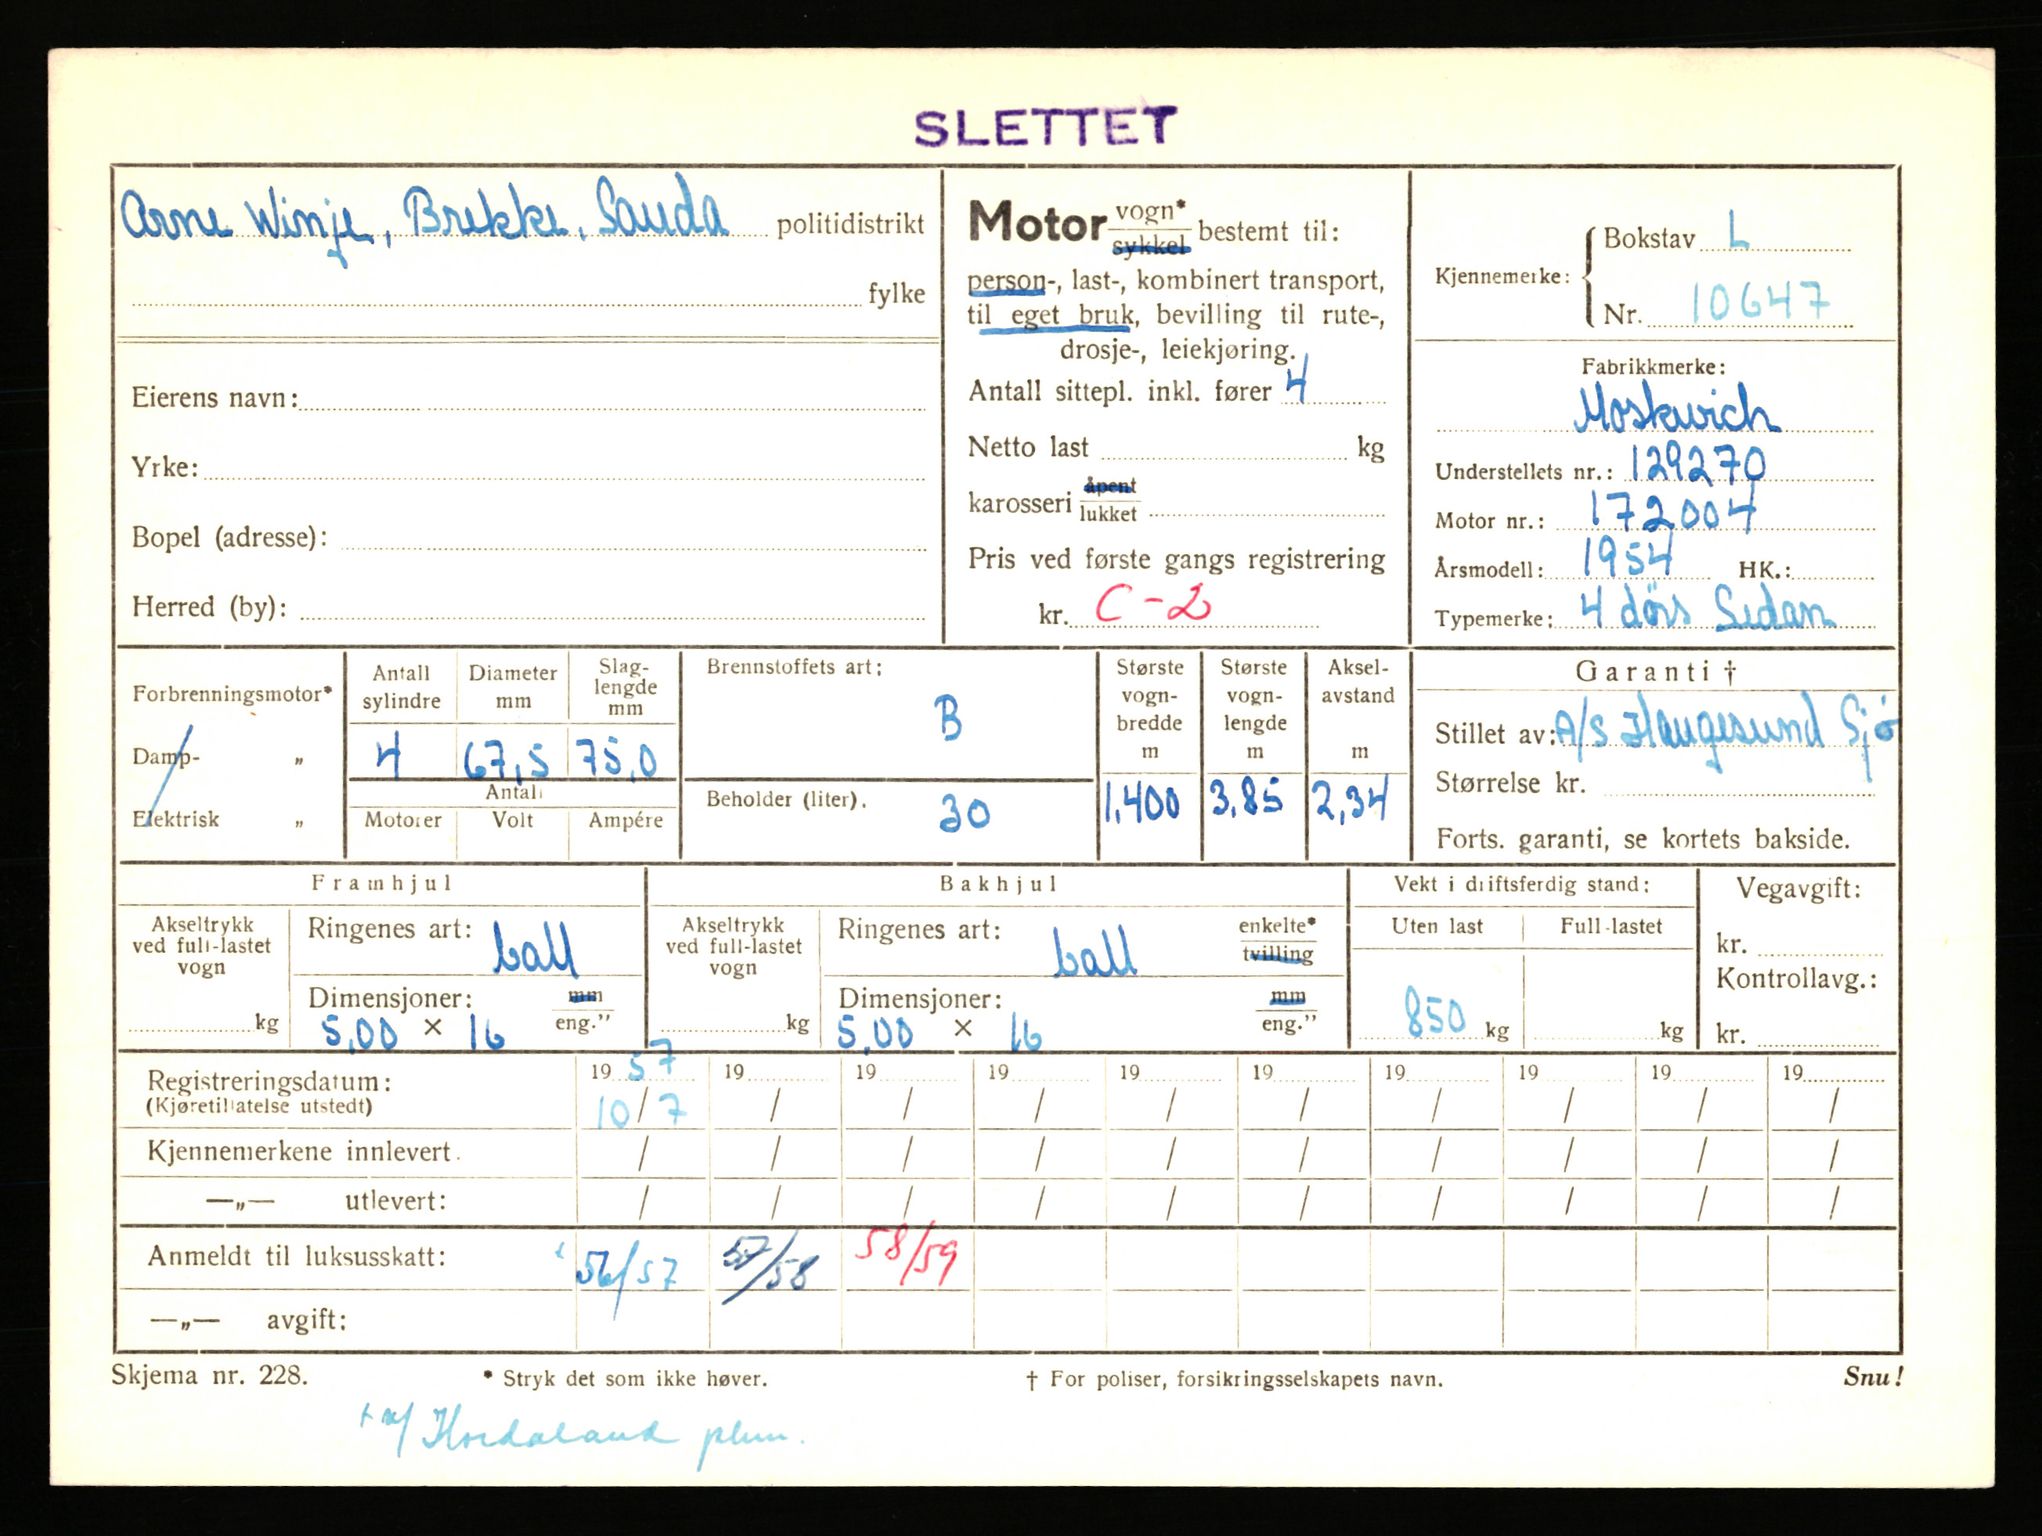 SLETTET
Arne Winje, Brekke, Sauda politidistrikt
fylke
Eierens navn:
Yrke:
Bopel (adresse):
Herred (by):
Motor vogn* sykkel bestemt til:
person-, last-, kombinert transport,
til eget bruk, bevilling til rute-,
drosje-, leiekjøring.
Antall sittepl. inkl. fører 4
Netto last kg
karosseri åpent lukket
Pris ved første gangs registrering
kr. C-2
Kjennemerke: Bokstav L
Nr. 10647
Fabrikkmerke:
Moskwich
Understellets nr.: 129270
Motor nr.: 172004
Årsmodell: 1954 HK.:
Typemerke: 4 dørs Sedan
Forbrenningsmotor*
Damp- „
Elektrisk „
Antall sylindre
Diameter mm
Slag-lengde mm
4 67,5 75,0
Antall
Motorer Volt Ampére
Brennstoffets art:
B
Beholder (liter).
30
Største vogn-bredde m
1,400
Største vogn-lengde m
3,85
Aksel-avstand m
2,34
Garanti †
Stillet av: A/S Haugesund Sjø
Størrelse kr.
Forts. garanti, se kortets bakside.
Framhjul
Akseltrykk
ved full-lastet
vogn
kg
Ringenes art: ball
Dimensjoner: mm
5,00 × 16 eng."
Bakhjul
Akseltrykk
ved full-lastet
vogn
kg
Ringenes art: ball enkelte* tvilling
Dimensjoner: mm
5,00 × 16 eng."
Vekt i driftsferdig stand:
Uten last Full-lastet
850 kg kg
Vegavgift:
kr.
Kontrollavg.:
kr.
Registreringsdatum: 19 57 19 19 19 19 19 19 19 19 19
(Kjøretillatelse utstedt) 10/7 / / / / / / / / /
Kjennemerkene innlevert. / / / / / / / / / /
—„— utlevert: / / / / / / / / / /
Anmeldt til luksusskatt: 56/57 57/58 58/59
—„— avgift:
Skjema nr. 228. * Stryk det som ikke høver. † For poliser, forsikringsselskapets navn. Snu!
Hordaland